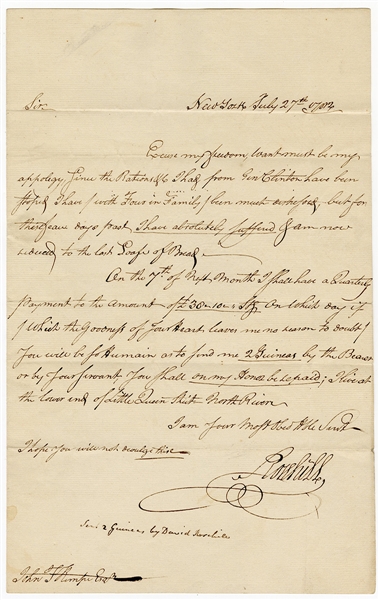 New York July 27th 1783
Sir
Excuse my freedom, Want must be my
appology, Since the Rations &c I had from Genl Clinton have been
stopd I have (with Four in Family) been much distressed, but for
these few days past, I have absolutely suffered & am now
reduced to the last Loafe of Bread
On the 7th of Next Month I shall have a Quarterly
Payment to the Amount of £30 10 Stg. On which day if
(Which the Goodness of your Heart leaves me no reason to doubt)
You will be so Humain as to find me 2 Guineas by the Bearer
or by your Servant You shall on my Honor be repaid; I live at
the lower end of Little Queen Street North River
I am Your Most Obt Hble Servt
I hope you will not divulge this
Sent 2 Guineas by David
John Esqr